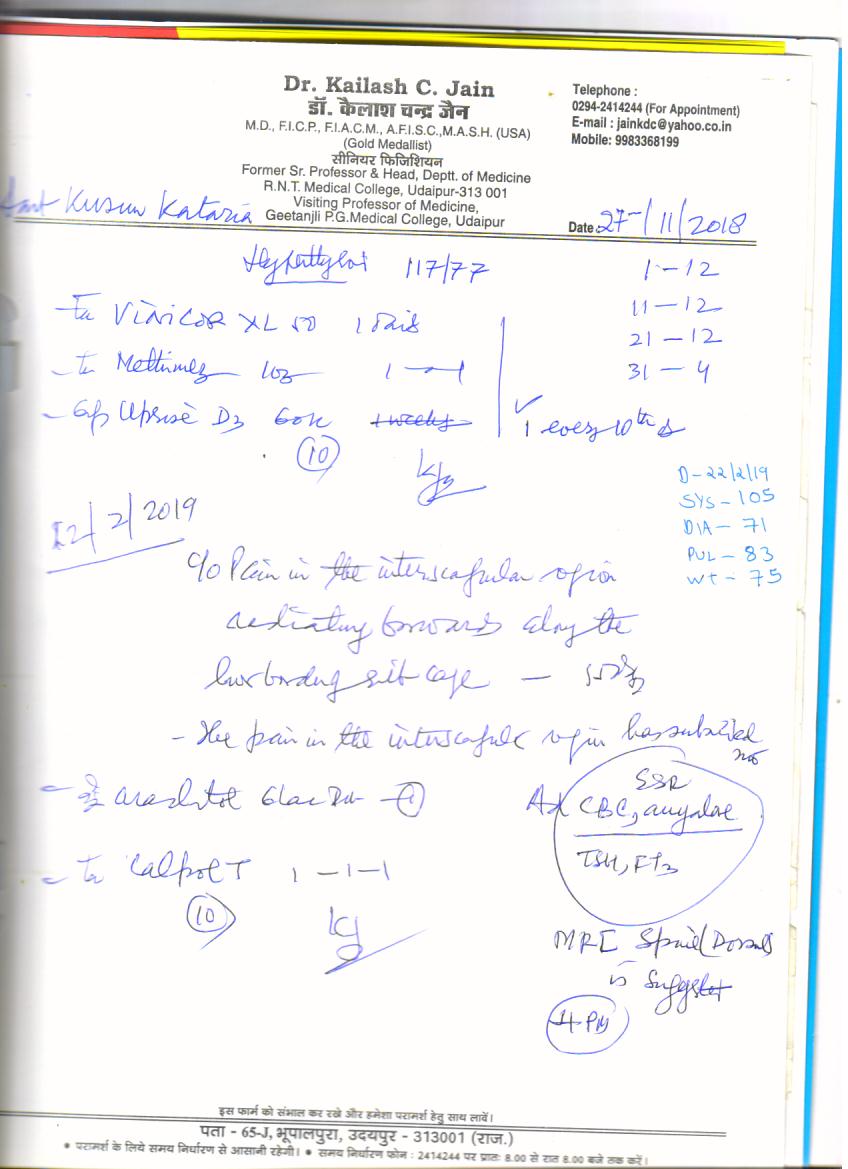 Dr. Kailash C. Jain
डॉ. कैलाश चन्द्र जैन
M.D., F.I.C.P., F.I.A.C.M., A.F.I.S.C.,M.A.S.H. (USA)
(Gold Medallist)
सीनियर फिजिशियन
Former Sr. Professor & Head, Deptt. of Medicine
R.N.T. Medical College, Udaipur-313 001
Visiting Professor of Medicine,
Geetanjli P.G.Medical College, Udaipur
Telephone :
0294-2414244 (For Appointment)
E-mail : jainkdc@yahoo.co.in
Mobile: 9983368199
Kusum Kataria
Date: 27/11/2018
117/77
1-12
11-12
21-12
31-4
VINICOR XL 50 1 daily
10
1 — 1
Uprise D3 60K 1 weekly
1 every 10th d
10
D-22/2/19
SYS-105
DIA-71
PUL-83
WT-75
12/2/2019
c/o Pain in the interscapular region
radiating forwards along the
- The pain in the region has subsided
ESR
CBC,
TSH, FT3
Calpol T 1-1-1
10
MRI Spine (Dorsal)
is suggested
4-PM
इस फार्म को संभाल कर रखे और हमेशा परामर्श हेतु साथ लावें।
पता - 65-J, भूपालपुरा, उदयपुर - 313001 (राज.)
• परामर्श के लिये समय निर्धारण से आसानी रहेगी। • समय निर्धारण फोन : 2414244 पर प्रातः 8.00 से रात 8.00 बजे तक करें।